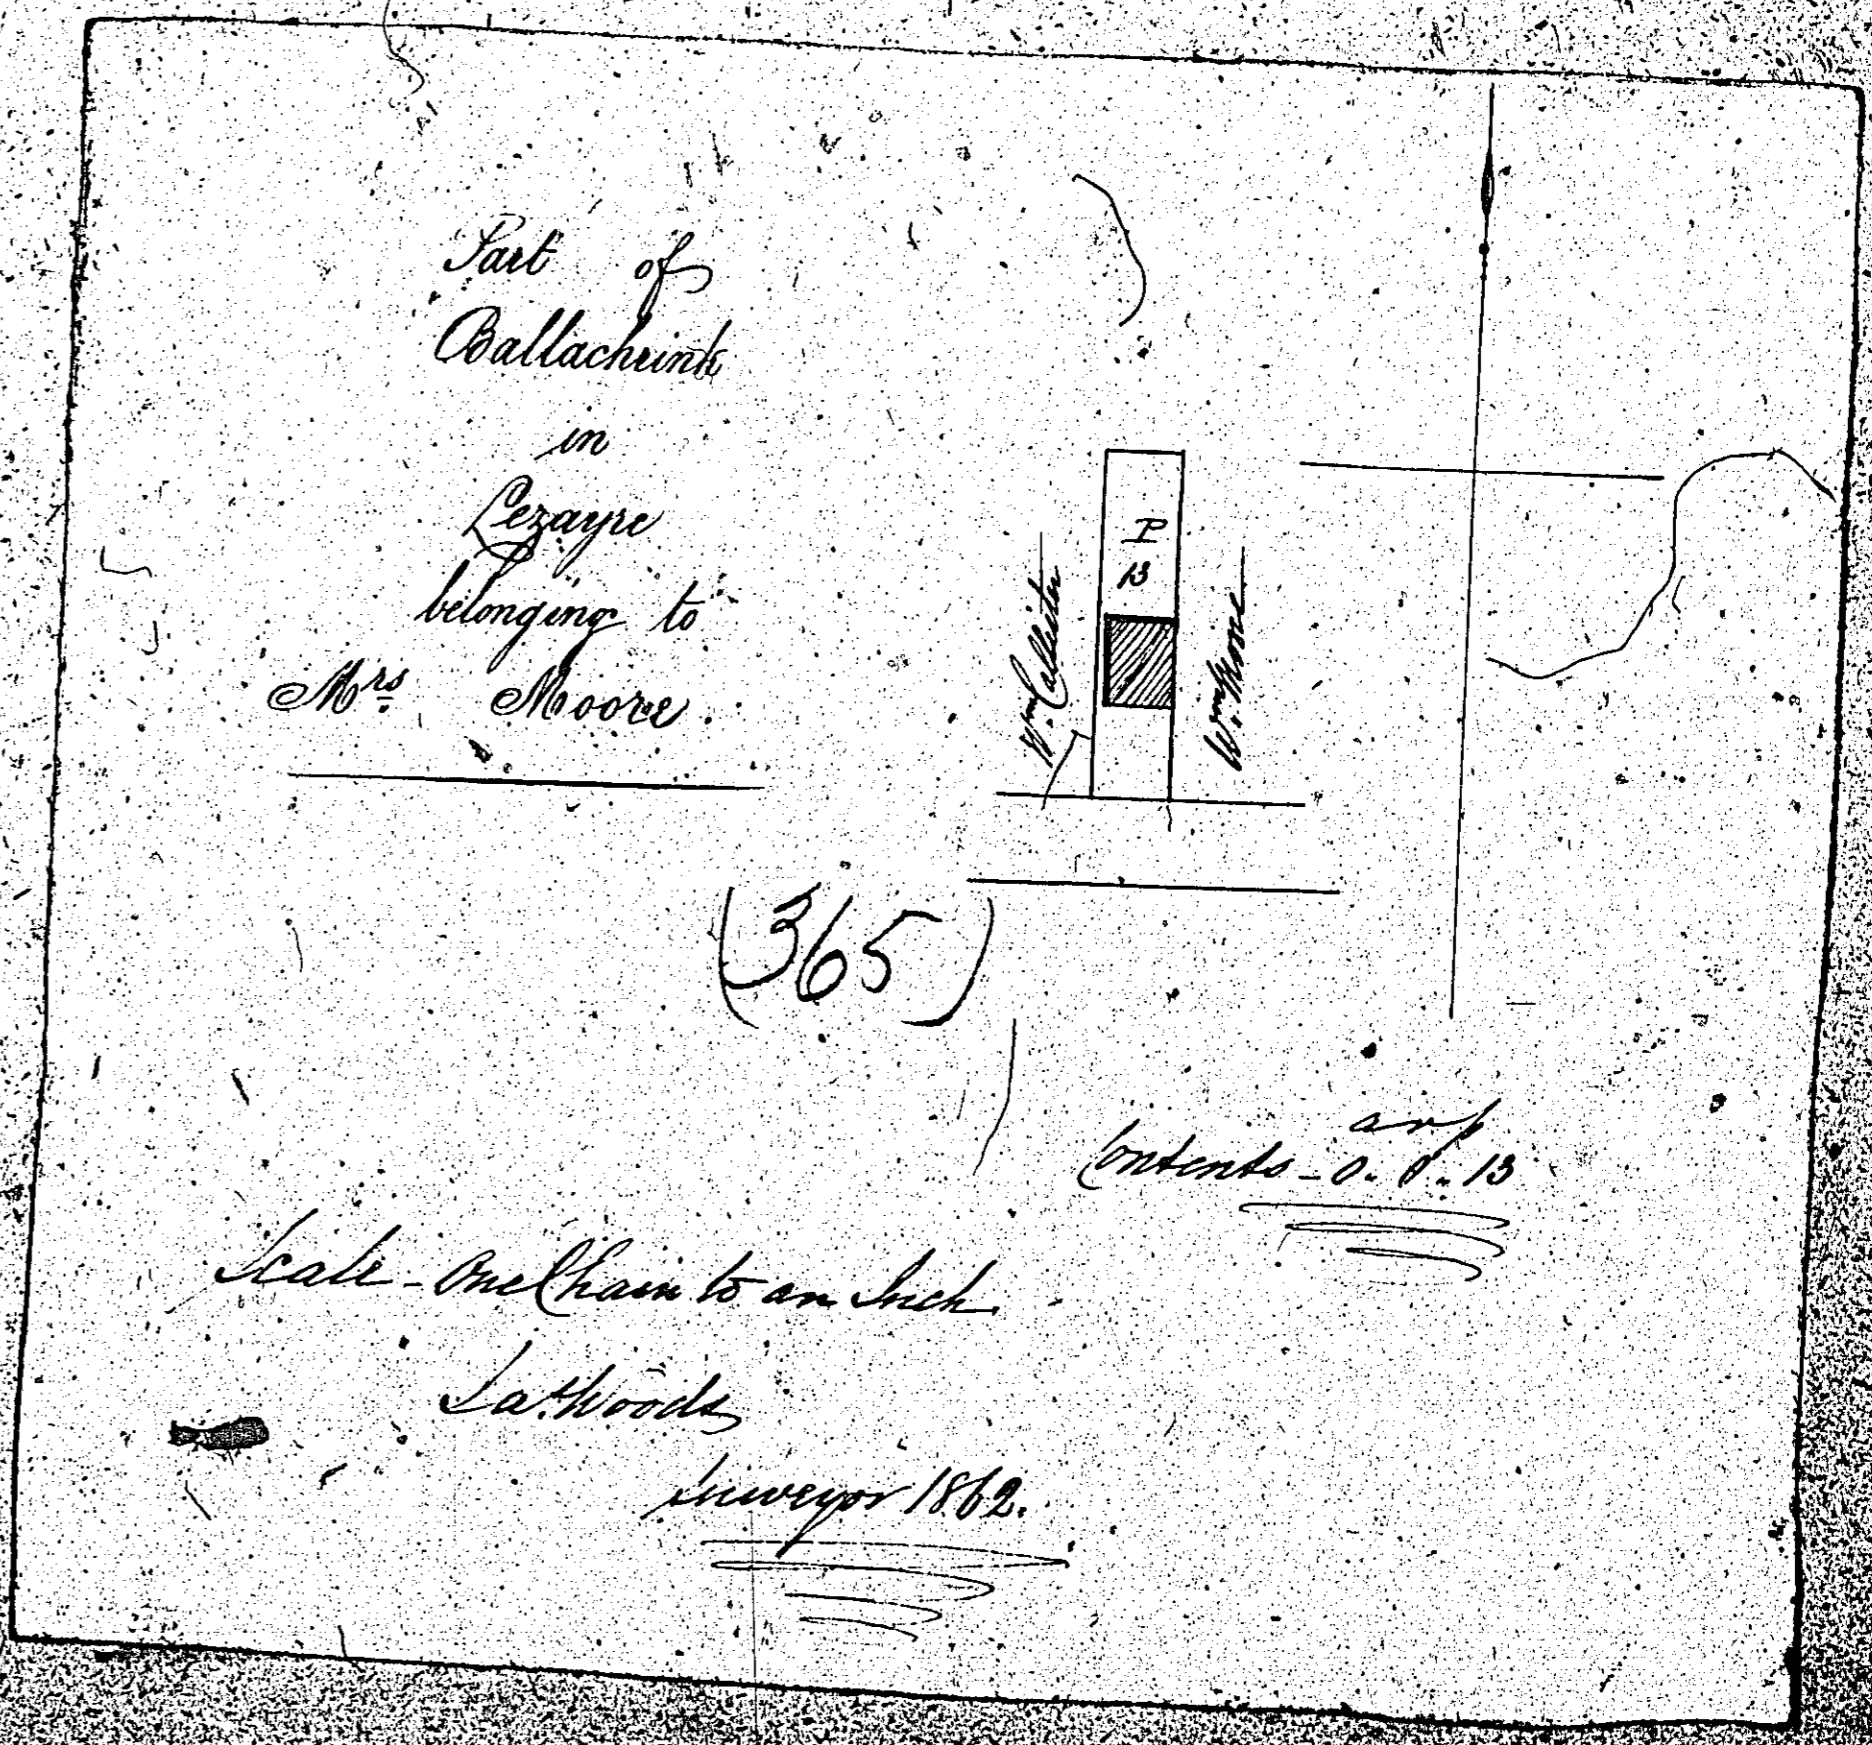 Part of
Ballachrink
in
Lezayre
belonging to
Mrs Moore
P
13
Wm Callister
Wm Moore
(365)
a r p
Contents - 0.. 0.. 13
Scale - One Chain to an Inch.
Jas. Woods
Surveyor 1862.